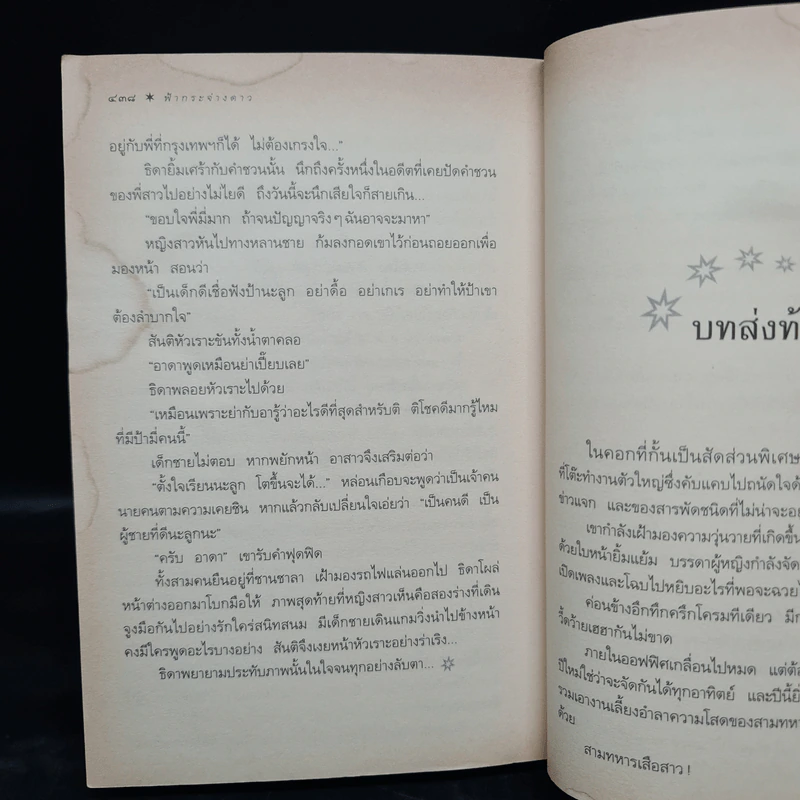 ๔๓๘ ✶ ฟ้ากระจ่างดาว
อยู่กับพี่ที่กรุงเทพฯก็ได้ ไม่ต้องเกรงใจ..."
ธิดายิ้มเศร้ากับคำชวนนั้น นึกถึงครั้งหนึ่งในอดีตที่เคยปัดคำชวน
ของพี่สาวไปอย่างไม่ไยดี ถึงวันนี้จะนึกเสียใจก็สายเกิน...
"ขอบใจพี่มี่มาก ถ้าจนปัญญาจริงๆ ฉันอาจจะมาหา"
หญิงสาวหันไปทางหลานชาย ก้มลงกอดเขาไว้ก่อนถอยออกเพื่อ
มองหน้า สอนว่า
"เป็นเด็กดีเชื่อฟังป้านะลูก อย่าดื้อ อย่าเกเร อย่าทำให้ป้าเขา
ต้องลำบากใจ"
สันติหัวเราะขันทั้งน้ำตาคลอ
"อาดาพูดเหมือนย่าเปี๊ยบเลย"
ธิดาพลอยหัวเราะไปด้วย
"เหมือนเพราะย่ากับอารู้ว่าอะไรดีที่สุดสำหรับติ ติโชคดีมากรู้ไหม
ที่มีป้ามี่คนนี้"
เด็กชายไม่ตอบ หากพยักหน้า อาสาวจึงเสริมต่อว่า
"ตั้งใจเรียนนะลูก โตขึ้นจะได้..." หล่อนเกือบจะพูดว่าเป็นเจ้าคน
นายคนตามความเคยชิน หากแล้วกลับเปลี่ยนใจเอ่ยว่า "เป็นคนดี เป็น
ผู้ชายที่ดีนะลูกนะ"
"ครับ อาดา" เขารับคำฟุดฟิด
ทั้งสามคนยืนอยู่ที่ชานชาลา เฝ้ามองรถไฟแล่นออกไป ธิดาโผล่
หน้าต่างออกมาโบกมือให้ ภาพสุดท้ายที่หญิงสาวเห็นคือสองร่างที่เดิน
จูงมือกันไปอย่างรักใคร่สนิทสนม มีเด็กชายเดินแกมวิ่งนำไปข้างหน้า
คงมีใครพูดอะไรบางอย่าง สันติจึงเงยหน้าหัวเราะอย่างร่าเริง...
ธิดาพยายามประทับภาพนั้นในใจจนทุกอย่างลับตา...
บทส่งท้
ในคอกที่กั้นเป็นสัดส่วนพิเศษ
ที่โต๊ะทำงานตัวใหญ่ซึ่งคับแคบไปถนัดใจด้
ข่าวแจก และของสารพัดชนิดที่ไม่น่าจะอยู่
เขากำลังเฝ้ามองความวุ่นวายที่เกิดขึ้น
ด้วยใบหน้ายิ้มแย้ม บรรดาผู้หญิงกำลังจัด
เปิดเพลงและโฉบไปหยิบอะไรที่พอจะฉวย
ค่อนข้างอึกทึกครึกโครมทีเดียว มี
วี้ดว้ายเฮฮากันไม่ขาด
ภายในออฟฟิศเกลื่อนไปหมด แต่ต้
ปีใหม่ใช่ว่าจะจัดกันได้ทุกอาทิตย์ และปีนี้
รวมเอางานเลี้ยงอำลาความโสดของสามทหา
ด้วย
สามทหารเสือสาว !